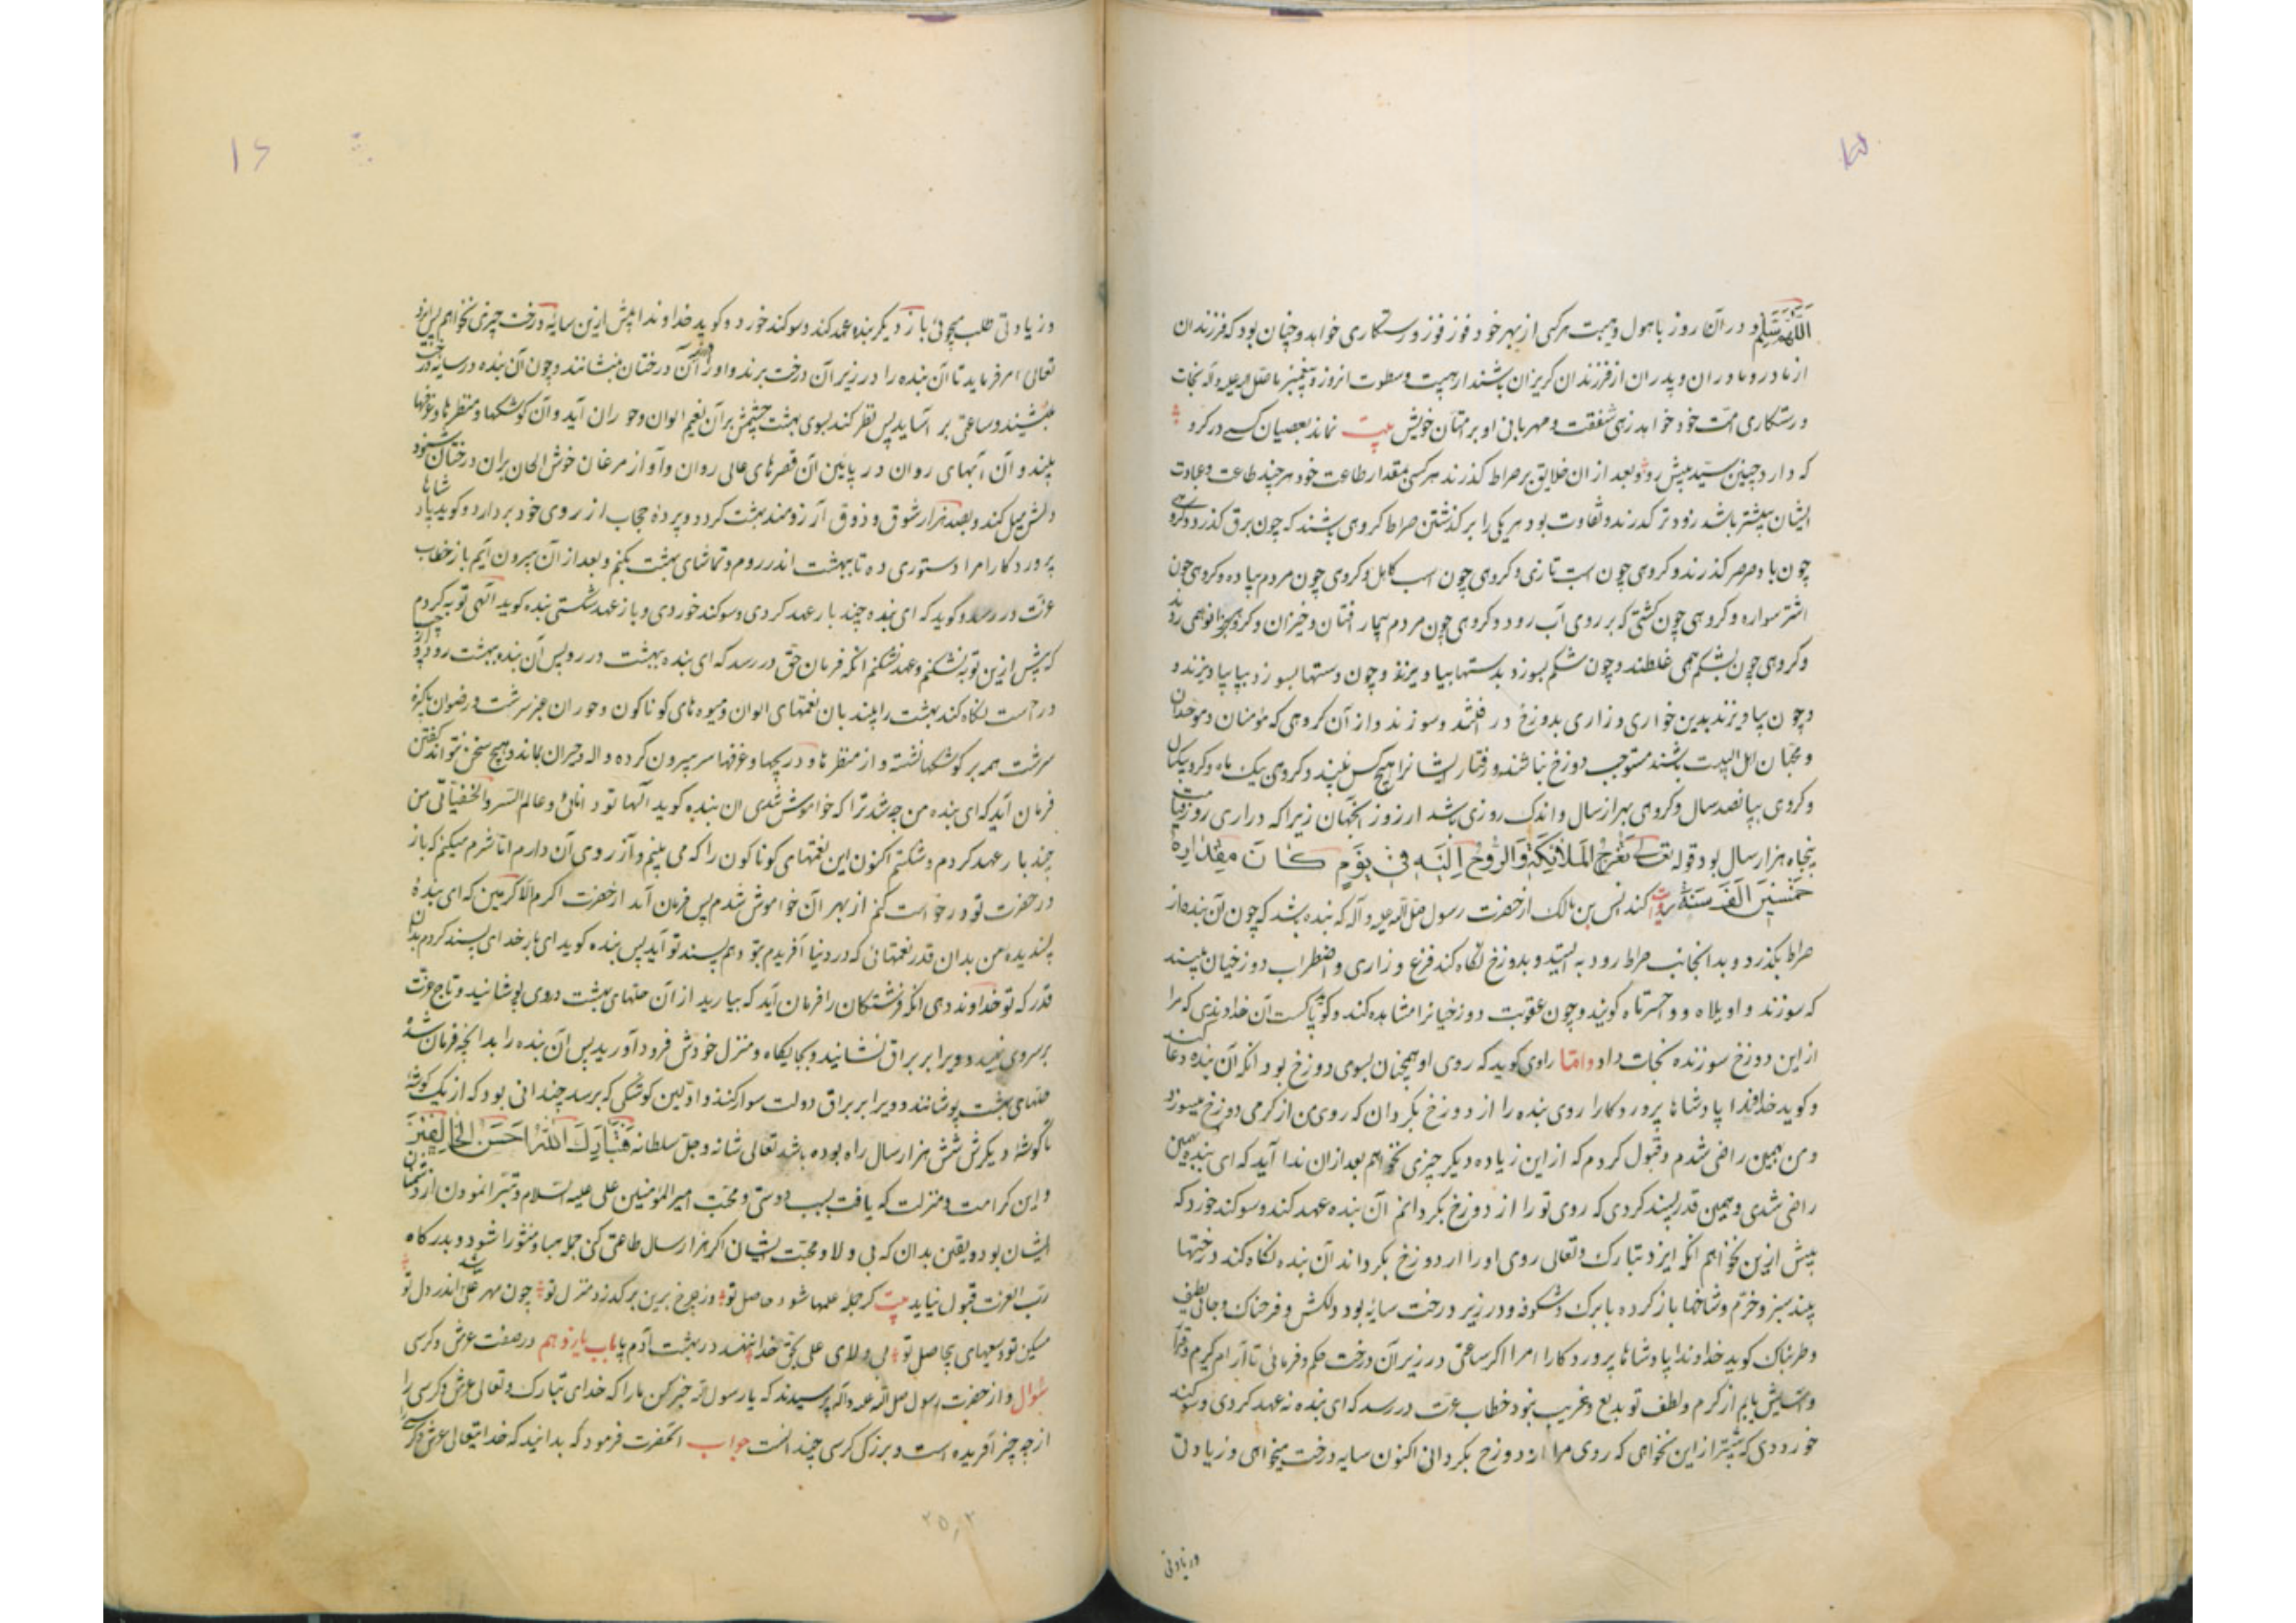 ۱۵
اللهم سلم و در آن روز با هول و هیبت هر کسی از بهر خود فوز فوز و رستکاری خواهد و چنان بود که فرزندان
از مادر و مادران و پدران از فرزندان کریزان باشند از هیبت و سطوت انروز و پیغمبر ما صلی الله علیه و آله نجات
و رستکاری امت خود خواهد زهی شفقت و مهربانی او بر امتان خویش بیت نماند بعصیان کسی در کرو
که دارد چنین سید پیش رو و بعد از ان خلایق بر صراط کذرند هر کسی بمقدار طاعت خود هر چند طاعت و عبادت
ایشان بیشتر باشد زودتر کذرند و تفاوت بود هر یکی را بر کذشتن صراط کروهی باشند که چون برق کذرد و کروهی
چون باد صرصر کذرند و کروهی چون اسب تازی و کروهی چون اسب کاهل و کروهی چون مردم پیاده و کروهی چون
اشتر سواره و کروهی چون کشتی که بر روی آب رود و کروهی چون مردم بیمار افتان و خیزان و کروهی بزانو همی روند
و کروهی چون بشکم همی غلطند و چون شکم بسوزد بدستها بیاویزند و چون دستها بسوزد بپا بیاویزند و
و چون بپا ویزند بدین خواری و زاری بدوزخ در افتند و سوزند و از آن کروهی که مؤمنان و موحدان
و محبان اهل البیت باشند مستوجب دوزخ نباشند و رفتار ایشانرا هیچکس نبیند و کروهی بیک ماه و کروهی بیکسال
و کروهی بپانصد سال و کروهی بهزار سال و اندک روزی باشد از روز آنجهان زیرا که درازی روز قیامت
پنجاه هزار سال بود قوله تعالی تعرج الملائکة والروح الیه فی یوم کان مقداره
خمسین الف سنة روایت کند انس بن مالک از حضرت رسول صلی الله علیه و آله که بنده باشد که چون آن بنده از
صراط بکذرد و بدانجانب صراط رود به ایستد و بدوزخ نکاه کند فزع و زاری و اضطراب دوزخیان بیند
که سوزند و اویلاه و واحسرتاه کویند و چون عقوبت دوزخیانرا مشاهده کند و کوید پاکست آن خداوندی که مرا
از این دوزخ سوزنده نجات داد و اما راوی کوید که روی او همچنان بسوی دوزخ بود آنکه آن بنده دعا کند
و کوید خداوندا پادشاها پروردکارا روی بنده را از دوزخ بکردان که روی من از کرمی دوزخ میسوزد
و من بهمین راضی شدم و قبول کردم که از این زیاده دیکر چیزی نخواهم بعد از ان ندا آید که ای بنده بهمین
راضی شدی و همین قدر پسند کردی که روی تو را از دوزخ بکردانم آن بنده عهد کند و سوکند خورد که
بیش از این نخواهم آنکه ایزد تبارک و تعالی روی او را از دوزخ بکرداند آن بنده نکاه کند درختها
بیند سبز و خرم و شاخها باز کرده با برک و شکوفه و در زیر درخت سایه بود دلکش و فرحناک و جای لطیف
و طربناک کوید خداوندا پادشاها پروردکارا مرا اکر ساعتی در زیر آن درخت حکم فرمائی تا آرام کیرم و قرار
و آسایش یابم از کرم و لطف تو بدیع و غریب نبود خطاب عزت در رسد که ای بنده نه عهد کردی و سوکند
خوردی که بیشتر از این نخواهی که روی مرا از دوزخ بکردانی اکنون سایه درخت میخواهی و زیادتی
و زیادتی
۱۶
و زیادتی طلب میجوئی باز دیکر بنده عهد کند و سوکند خورد و کوید خداوندا بیش ازین سایه درخت چیزی نخواهم پس ایزد
تعالی امر فرماید تا آن بنده را در زیر آن درخت برند و او را در آن درختان بنشانند و چون آن بنده در سایه درخت
بنشیند و ساعتی بر آساید پس نظر کند بسوی بهشت چشمش بر آن نعیم الوان و حوران آید و آن کوشکها و منظرها و غرفها
بیند و آن آبهای روان در پائین آن قصرهای عالی روان و آواز مرغان خوش الحان بران درختان شنود
دلش میل کند و بصد هزار شوق و ذوق آرزومند بهشت کردد و پرده حجاب از روی خود بردارد و کوید پادشاها
پروردکارا مرا دستوری ده تا ببهشت اندر روم و تماشای بهشت بکنم و بعد از آن بیرون آیم باز خطاب
عزت در رسد و کوید که ای بنده چند بار عهد کردی و سوکند خوردی و باز عهد شکستی بنده کوید الهی توبه کردم
که بیش از این توبه نشکنم و عهد نشکنم آنکه فرمان حق در رسد که ای بنده ببهشت در رو پس آن بنده ببهشت رود و چپ
و راست نکاه کند بهشت را بیند بان نعمتهای الوان و میوه های کوناکون و حوران عنبر سرشت و رضوان پاکیزه
سرشت همه بر کوشکها نشسته و از منظرها و دریچها و غرفها سر بیرون کرده واله و حیران بماند و هیچ سخن نتواند کفتن
فرمان آید که ای بنده من چه شد ترا که خاموش شدی ان بنده کوید الها تو دانائی و عالم السر والخفیاتی من
چند بار عهد کردم و شکستم اکنون این نعمتهای کوناکون را که می بینم و آرزوی آن دارم اما شرم میکنم که باز
در حضرت تو درخواست کنم از بهر آن خواموش شدم پس فرمان آید از حضرت اکرم الاکرمین که ای بنده
پسندیده من بدان قدر نعمتهائی که در دنیا آفریدم بتو دهم پسند تو آید پس بنده کوید ای بار خدای پسند کردم بدان
قدر که تو خداوند دهی آنکه فرشتکان را فرمان آید که بیارید از آن حلتهای بهشت در وی پوشانید و تاج عزت
بر سر وی نهید و ویرا بر براق نشانید و بجایکاه و منزل خودش فرود آورید پس آن بنده را بدانچه فرمان شده
حلتهای بهشت پوشانند و ویرا بر براق دولت سوار کنند و اولین کوشکی که برسد چندانی بود که از یک کوشه
تا کوشهٔ دیکرش شش هزار سال راه بوده باشد تعالی شانه و جل سلطانه فتبارک الله احسن الخالقین
و این کرامت و منزلت که یافت بسبب دوستی و محبت امیر المؤمنین علی علیه السلام و تبرا نمودن از دشمنان
ایشان بود و یقین بدان که بی ولا و محبت ایشان اکر هزار سال طاعتی کنی جمله هباء منثورا شود و بدرکاه
رب العزت قبول نیاید بیت کر جمله علمها شود حاصل تو وز چرخ برین بر کذرد منزل تو چون مهر علی نباشد اندر دل تو
مسکین تو و سعیهای بیحاصل تو بی ولای علی بحق خدا ننهند در بهشت آدم پا باب یازدهم در صفت عرش و کرسی
سؤال و از حضرت رسول صلی الله علیه و آله پرسیدند که یا رسول الله خبر کن ما را که خدای تبارک و تعالی عرش و کرسی را
از چه چیز آفریده است و بزرکی کرسی چند است جواب آنحضرت فرمود که بدانید که خدایتعالی عرش و کرسی را